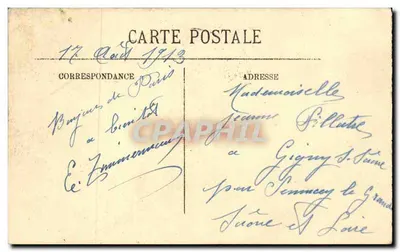 CARTE POSTALE
17 Août 1913
CORRESPONDANCE
Bonjour de Paris
a bientôt
E. Zimmermann
ADRESSE
Mademoiselle
Jeanne Pillatre
a
Gigny s. Saône
par Sennecey le Grand
Saône et Loire
CARTES